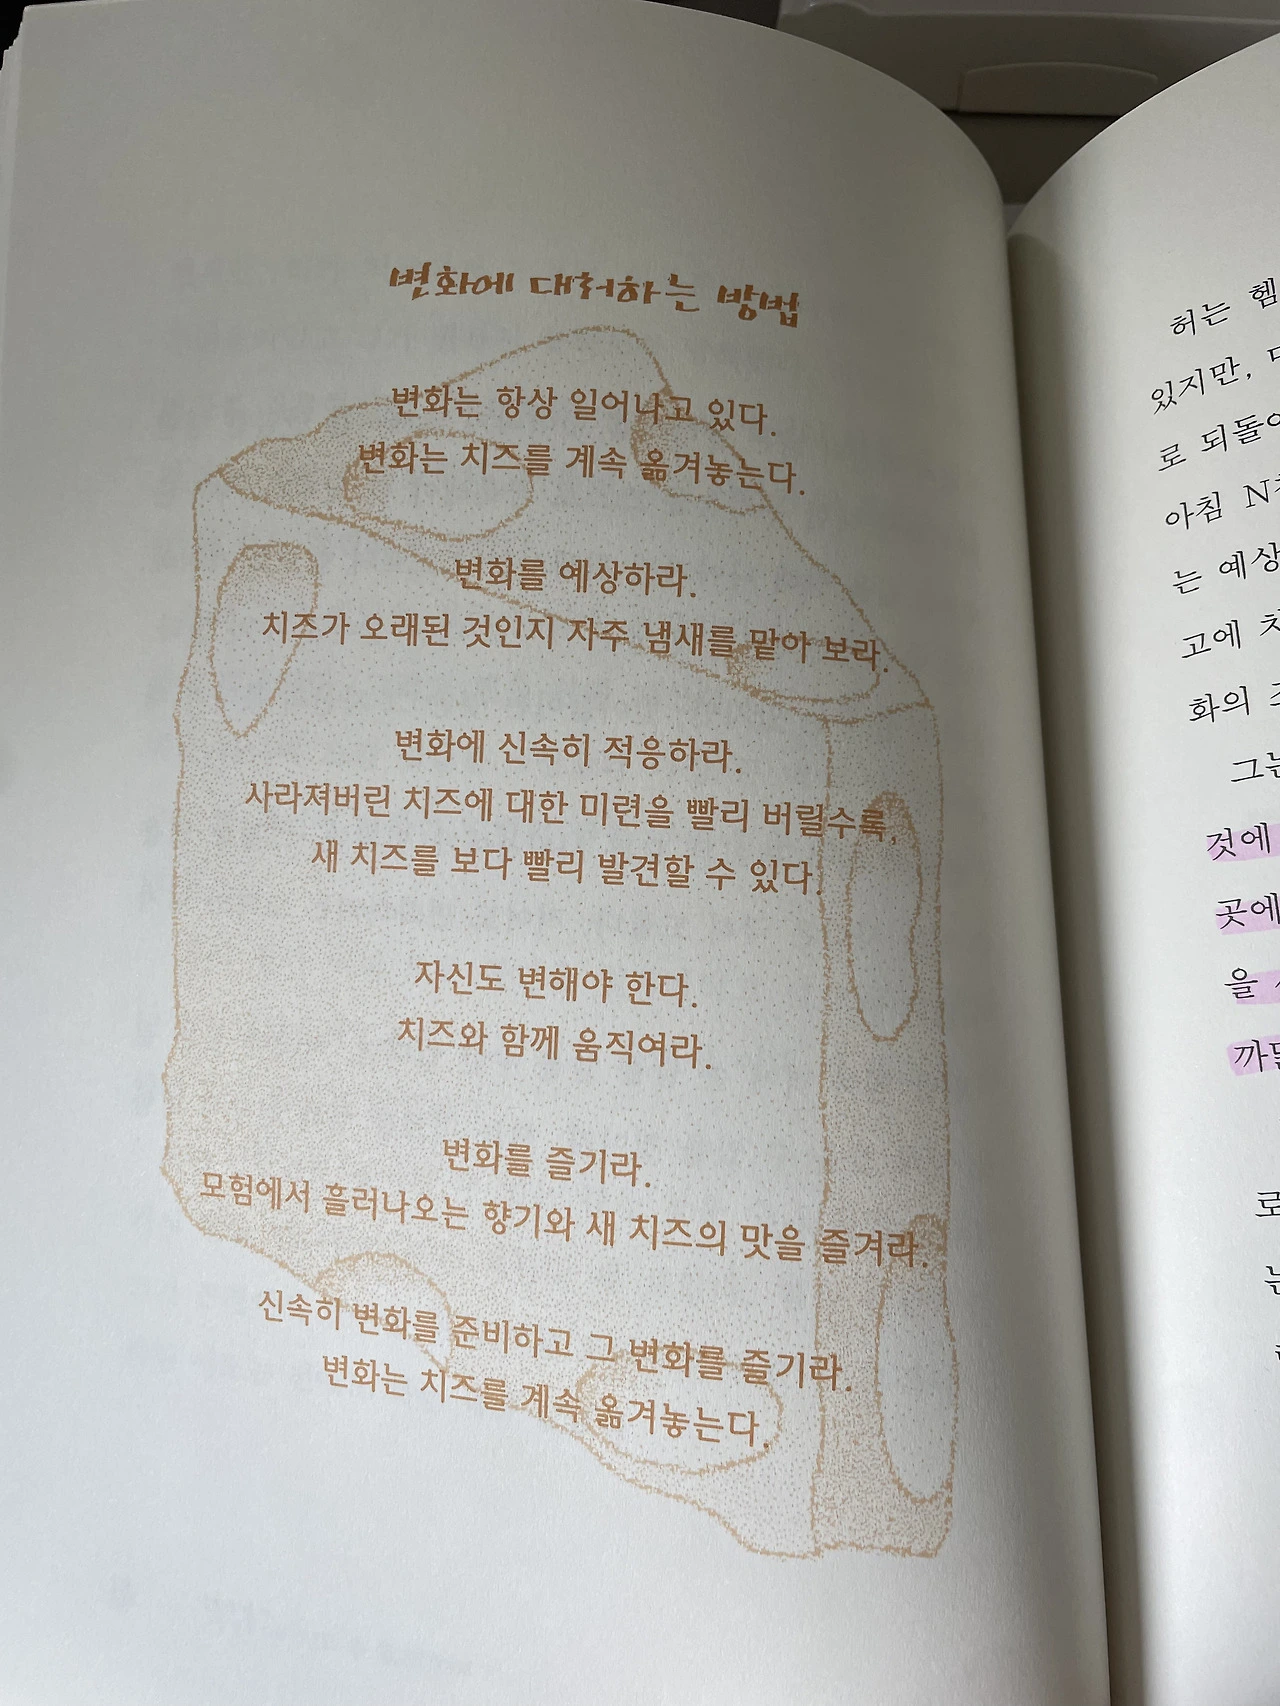 변화에 대처하는 방법
변화는 항상 일어나고 있다.
변화는 치즈를 계속 옮겨놓는다.
변화를 예상하라.
치즈가 오래된 것인지 자주 냄새를 맡아 보라.
변화에 신속히 적응하라.
사라져버린 치즈에 대한 미련을 빨리 버릴수록,
새 치즈를 보다 빨리 발견할 수 있다.
자신도 변해야 한다.
치즈와 함께 움직여라.
변화를 즐기라.
모험에서 흘러나오는 향기와 새 치즈의 맛을 즐겨라.
신속히 변화를 준비하고 그 변화를 즐기라.
변화는 치즈를 계속 옮겨놓는다.
허는 헴
있지만,
로 되돌아
아침
는 예상
고에
화의
그는
것에
곳에
을
로
는